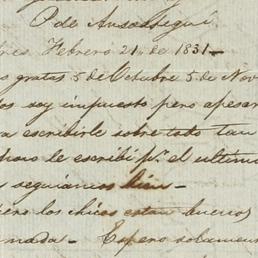 P. de Ansoategui
res Febrero 21. de 1831-
s gratas 5 de Octubre 5 de Nov
los soy impuesto pero apesar
a escribirle sobre todo tan
le escribi pr. el ultimo
seguiamos bien-
pero los chicos estan buenos
nada- Espero solamen